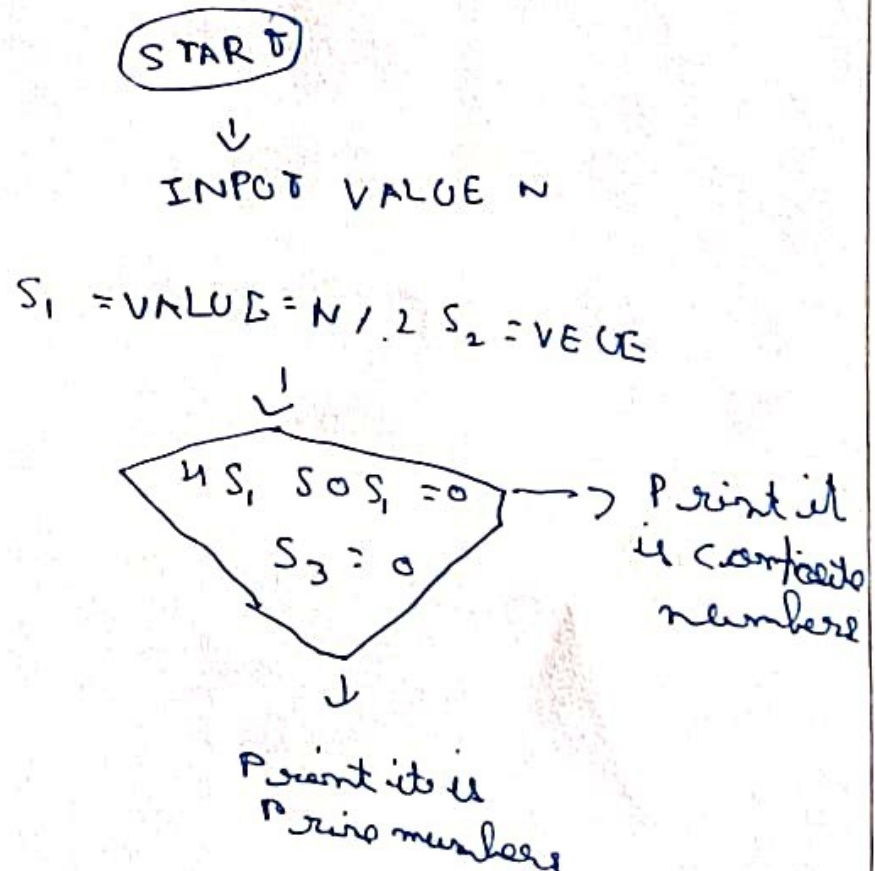 START
INPUT VALUE N
S₁ = VALUE = N / . 2 S₂ = VEUE
S₁ SOS₁ = 0
S₃ = 0
Print it
is composite
numbers
Prient it is
Prine numbers